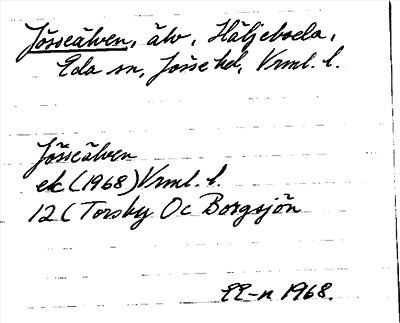 Jösseälven, älv, Häljeboda,
Eda sn, Jösse hd, Vrml. l.
Jösseälven
ek (1968) Vrml. l.
12C Torsby Oc Borgsjön
1968.